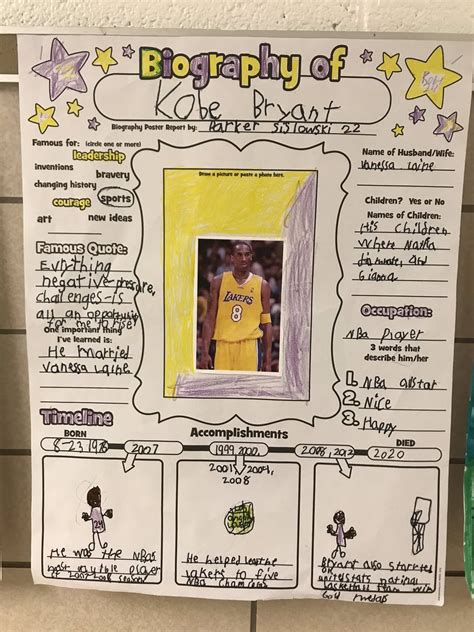 Biography of
Kobe Bryant
Biography Poster Report by: Parker Sislowski 22
Famous for: (circle one or more)
leadership
inventions bravery
changing history
courage sports
art new ideas
Famous Quote:
Evrything
negative-presure,
challenges-is
all an opportunity
for me to rise!
One important thing
I've learned is:
He married
Vanessa Laine
Draw a picture or paste a photo here.
LAKERS
8
Name of Husband/Wife:
Vanessa Laine
Children? Yes or No
Names of Children:
His Children
Where
and
Gianna
Occupation:
NBa Player
3 words that
describe him/her
1. NBa allstar
2. Nice
3. Happy
Timeline
Accomplishments
BORN
8-23 1978
2007
1999, 2000,
2001, 2004,
2008
2008, 2012
DIED
2020
24
He was the NBas
most
2007 2008 season
He helped lead the
lakers to five
NBa Champions
Bryant also starred
on
unitedstats national
basketball team win
Gold medals